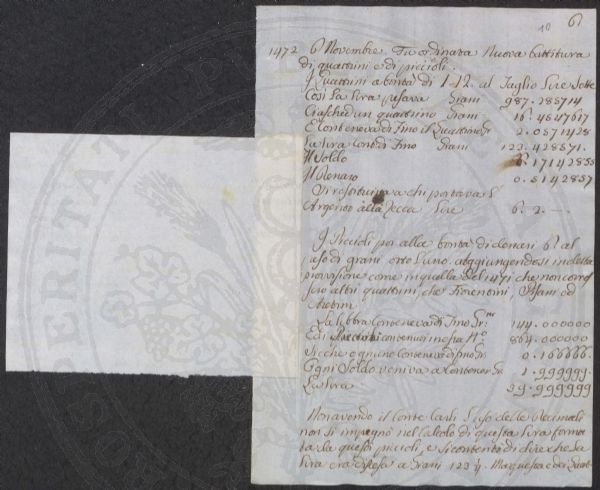 10 6.
1472 6 Novembre. Fu ordinata Nuova battitura
di quattrini e di piccioli.
I Quattrini a bontà di 1.12. al Taglio Lire Sette
Così La Lira pesava Grani 987.285714
Ciaschedun quattrino Grani 16.4547617
E Conteneva di Fino il Quattrino Gr. 2.0571428
La Lira Cont. di Fino Grani 123.428571.
Il Soldo 6.1714285
Il Denaro 0.5142857
Si restituiva a chi portava l'
Argento alla Zecca Lire 6. 2. —
I Piccioli poi alla bontà di denari 6. al
peso di grani otto l'uno. aggiungendosi in detta
provisione come in quella del 1471 che non corres
sero altri quattrini, che Fiorentini, Pisani ed
Aretini.
La Libbra Conteneva di Fino Gr. 144.000000
Ed i Piccioli contenuti in essa N.o 864.000000
Sicche ognuno Conteneva di fino Gr. 0.166666.
Ogni Soldo veniva a Contener Gr. 1.999999.
La Lira 39.999999
Non avendo il Conte Carli l'uso delle Decimali
non si impegnò nel Calcolo di questa Lira forma
ta da questi piccioli, e si contentò di dire che La
Lira era discesa a Grani 123